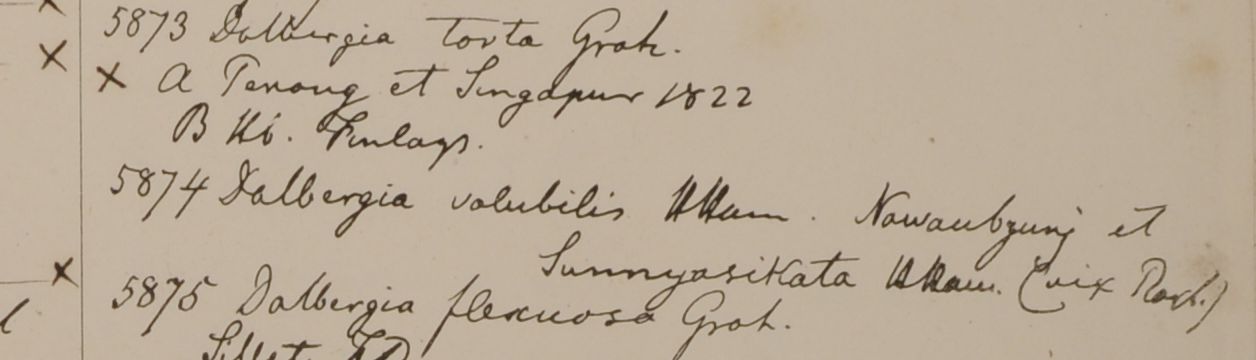 5873 Dalbergia torta Grah.
X A Penang et Singapur 1822
B Hb. Finlays.
5874 Dalbergia volubilis HHam. Nawaubgunj et
Sunnyasikata HHam. (vix Roxb.)
5875 Dalbergia flexuosa Grah.
Sillet